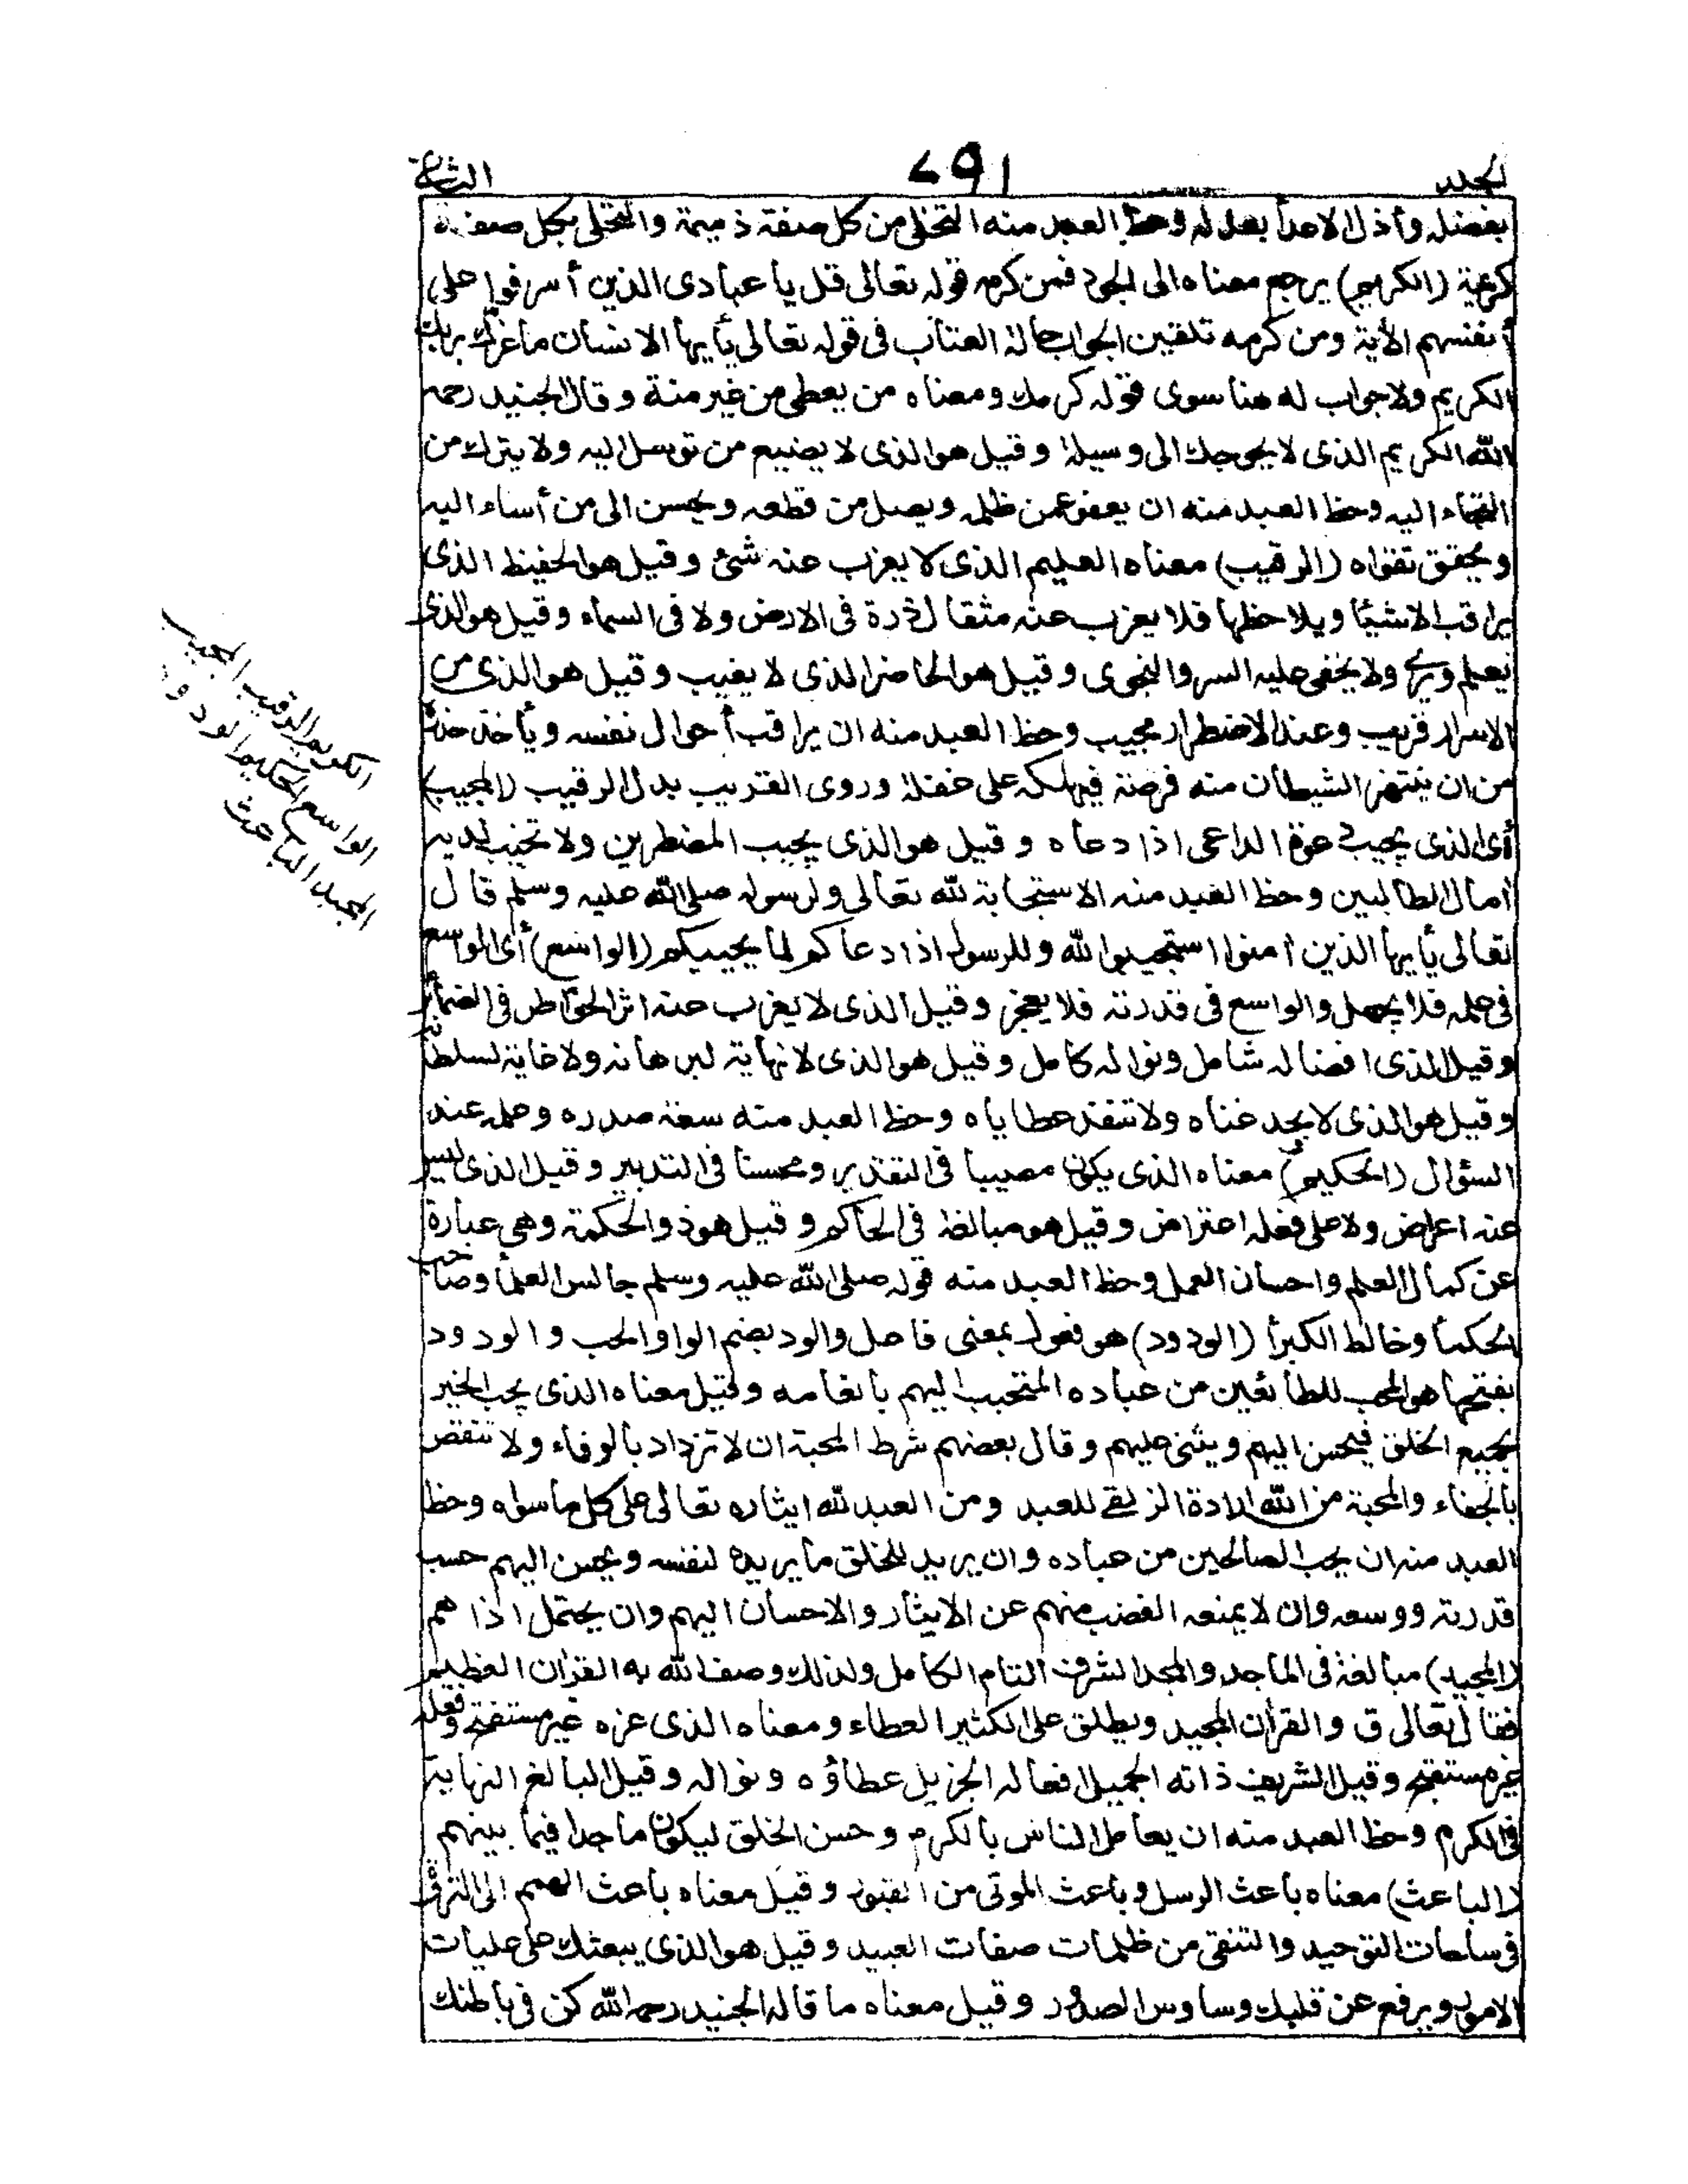 المجلد ٢٩١ الثالث
بفضله وأذل الاعدأ بعدله وحظ العبد منه التخلى من كل صفة ذميمة والتحلى بكل صفة
كريمة (الكريم) يرجع معناه الى الجود فمن كرمه قوله تعالى قل يا عبادى الذين أسرفوا على
أنفسهم الأية ومن كرمه تلقين الجواب حالة العتاب فى قوله تعالى يأيها الانسان ماغرك بربك
الكريم ولاجواب له هنا سوى قوله كرمك ومعناه من يعطى من غير منة وقال الجنيد رحمه
الله الكريم الذى لا يحوجك الى وسيلة وقيل هو الذى لا يضيع من توسل اليه ولا يترك من
التجاء اليه وحظ العبد منه ان يعفو عمن ظلمه ويصل من قطعه ويحسن الى من أساء اليه
ويحقق تقواه (الرقيب) معناه العليم الذى لا يعزب عنه شئ وقيل هو الحفيظ الذى
يراقب الاشيأ ويلاحظها فلا يعزب عنه مثقال ذرة فى الارض ولا فى السماء وقيل هو الذى
يعلم ويرى ولا يخفى عليه السر والنجوى وقيل هو الحاضر الذى لا يغيب وقيل هو الذى من
الاسرار قريب وعند الاضطرار مجيب وحظ العبد منه ان يراقب أحوال نفسه ويأخذ حذره
من ان ينتهز الشيطان منه فرصة فيهلكه على غفلة وروى القريب بدل الرقيب (المجيب)
أى الذى يجيب دعوة الداعى اذا دعاه وقيل هو الذى يجيب المضطرين ولا تخيب لديه
أمال الطالبين وحظ العبد منه الاستجابة لله تعالى ولرسوله صلى الله عليه وسلم قال
تعالى يأيها الذين امنوا استجيبوا لله وللرسول اذا دعاكم لما يحييكم (الواسع) أى الواسع
فى علمه فلا يجهل والواسع فى قدرته فلا يعجز وقيل الذى لا يعزب عنه اثر الخواطر فى الضمائر
وقيل الذى افضاله شامل ونواله كامل وقيل هو الذى لا نهاية لبرهانه ولا غاية لسلطانه
وقيل هو الذى لا يحد غناه ولا تنفد عطاياه وحظ العبد منه سعة صدره وحلمه عند
السؤال (الحكيم) معناه الذى يكون مصيبا فى التقدير ومحسنا فى التدبير وقيل الذى ليس
عنه اعراض ولا على فعله اعتراض وقيل هو مبالغة فى الحاكم وقيل هو ذو الحكمة وهى عبارة
عن كمال العلم واحسان العمل وحظ العبد منه قوله صلى الله عليه وسلم جالس العلمأ وصاحب
الحكمأ وخالط الكبرأ (الودود) هو فعول بمعنى فاعل والود بضم الواو الحب والودود
بفتحها هو المحب للطائعين من عباده المتحبب اليهم بانعامه وقيل معناه الذى يحب الخير
لجميع الخلق فيحسن اليهم ويثنى عليهم وقال بعضهم شرط المحبة ان لا تزداد بالوفاء ولا تنقص
بالجفاء والمحبة من الله ارادة الزلفى للعبد ومن العبد لله ايثاره تعالى على كل ماسواه وحظ
العبد منه ان يحب الصالحين من عباده وان يريد للخلق مايريده لنفسه ويحسن اليهم حسب
قدرته ووسعه وان لا يمنعه الغضب منهم عن الايثار والاحسان اليهم وان يحتمل اذاهم
(المجيد) مبالغة فى الماجد والمجد الشرف التام الكامل ولذلك وصف الله به القرأن العظيم
فقال تعالى ق والقرأن المجيد ويطلق على الكثير العطاء ومعناه الذى عزه غير مستفتح وفعله
غير مستقبح وقيل الشريف ذاته الجميل افعاله الجزيل عطاؤه ونواله وقيل البالغ النهاية
فى الكرم وحظ العبد منه ان يعامل الناس بالكرم وحسن الخلق ليكون ماجدا فيما بينهم
(الباعث) معناه باعث الرسل وباعث الموتى من القبور وقيل معناه باعث الهمم الى الترقى
فى ساحات التوحيد والتنقى من ظلمات صفات العبيد وقيل هو الذى يبعثك على عليات
الامور ويرفع عن قلبك وساوس الصدور وقيل معناه ما قاله الجنيد رحمه الله كن فى باطنك
الكريم الرقيب المجيب
الواسع الحكيم الودود
المجيد الباعث